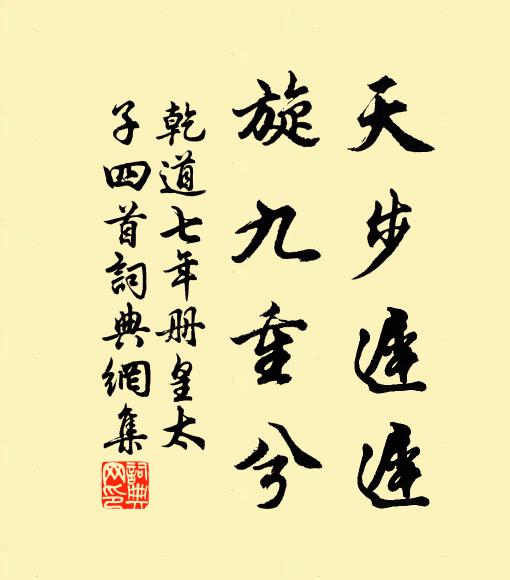 天步遲遲
旋九重兮
乾道七年册皇太
子四首詞典網集
詞典網印